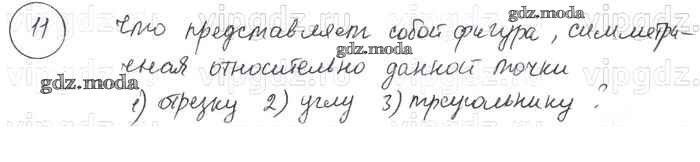 11 Что представляет собой фигура, симметри-
чная относительно данной точки
1) отрезку 2) углу 3) треугольнику ?
gdz.moda
gdz.moda
gdz.moda
gdz.moda
gdz.moda
gdz.moda